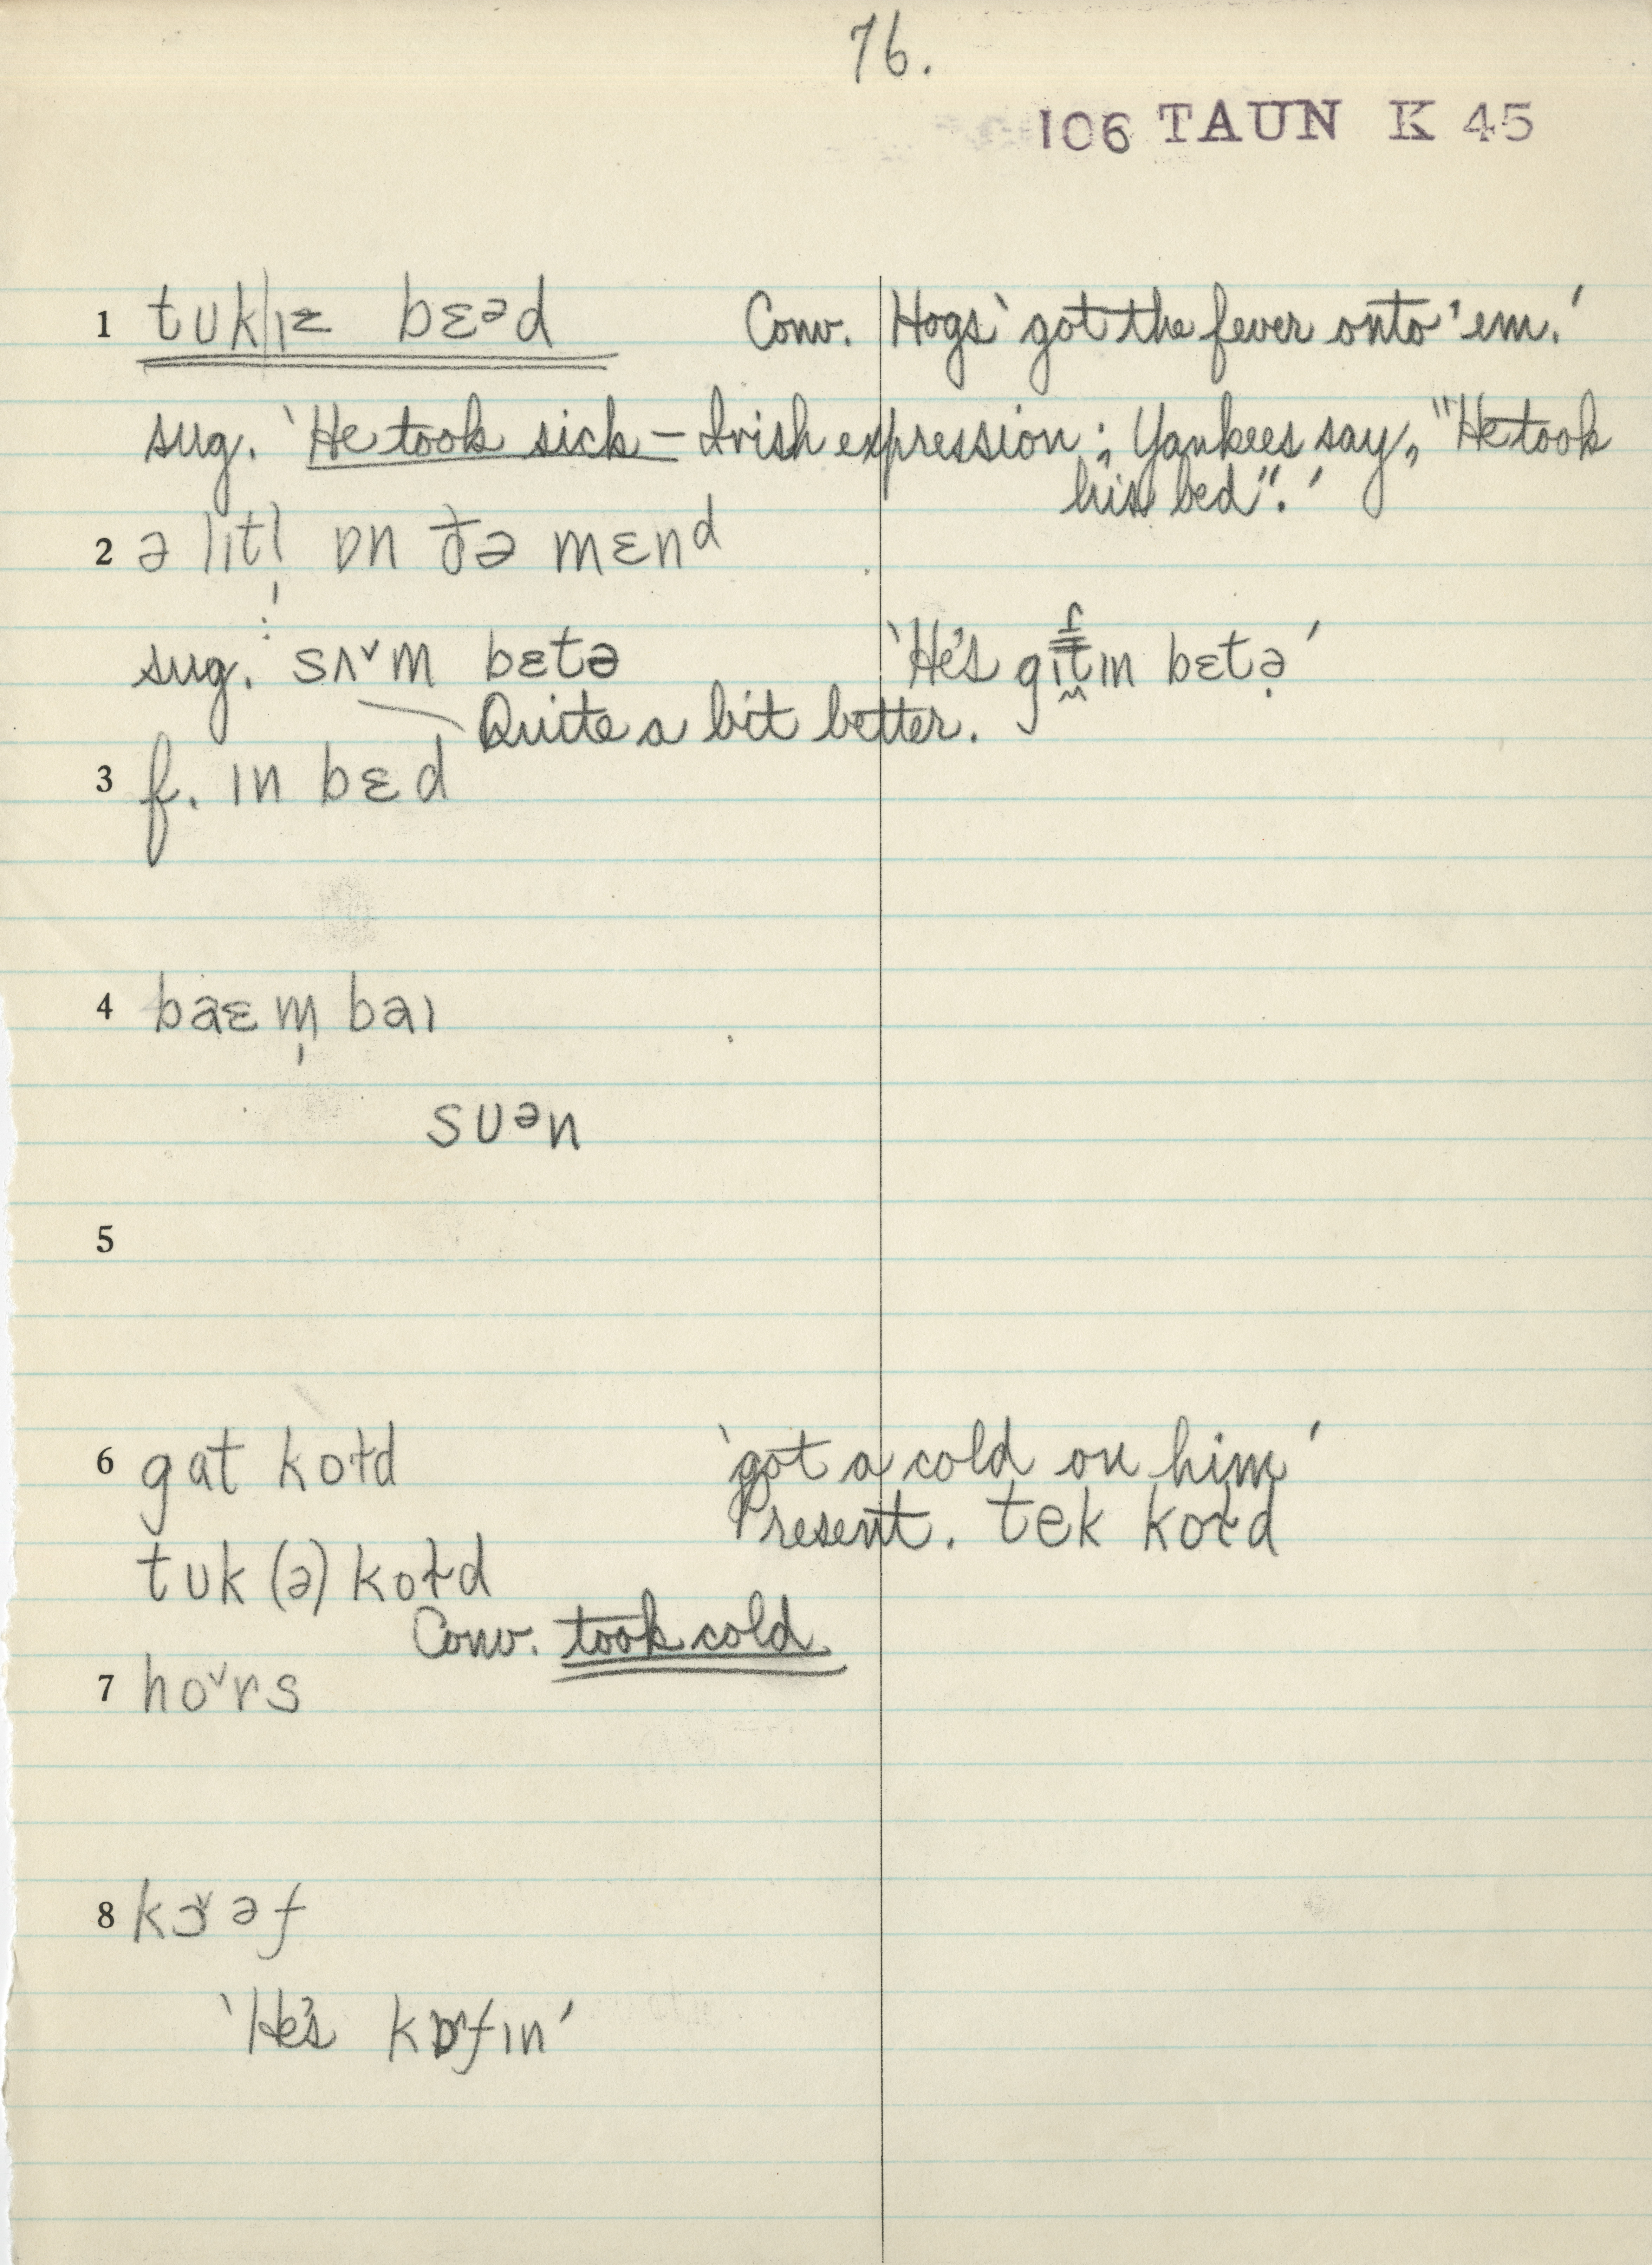 76.
106 TAUN K 45
1 tʊk|ɪz bɛᵊd Conv. Hogs 'got the fever onto 'em.'
sug. 'He took sick – Irish expression; Yankees say, "He took
his bed".'
2 ə lɪtl̩ ɒn ðə mɛnᵈ
sug. ⋮ sʌ˅m bɛtə 'He's gɪt̬ɪn bɛtə̣'
Quite a bit better.
3 f. ɪn bɛd
4 baɛm̩ baɪ
sʊᵊn
5
6 gat koɫd 'got a cold on him'
Present. tek koɫd
tʊk (ə) koɫd
Conv. took cold
7 ho˅rs
8 kɔ˅əf
'He's kɒ˅fɪn'